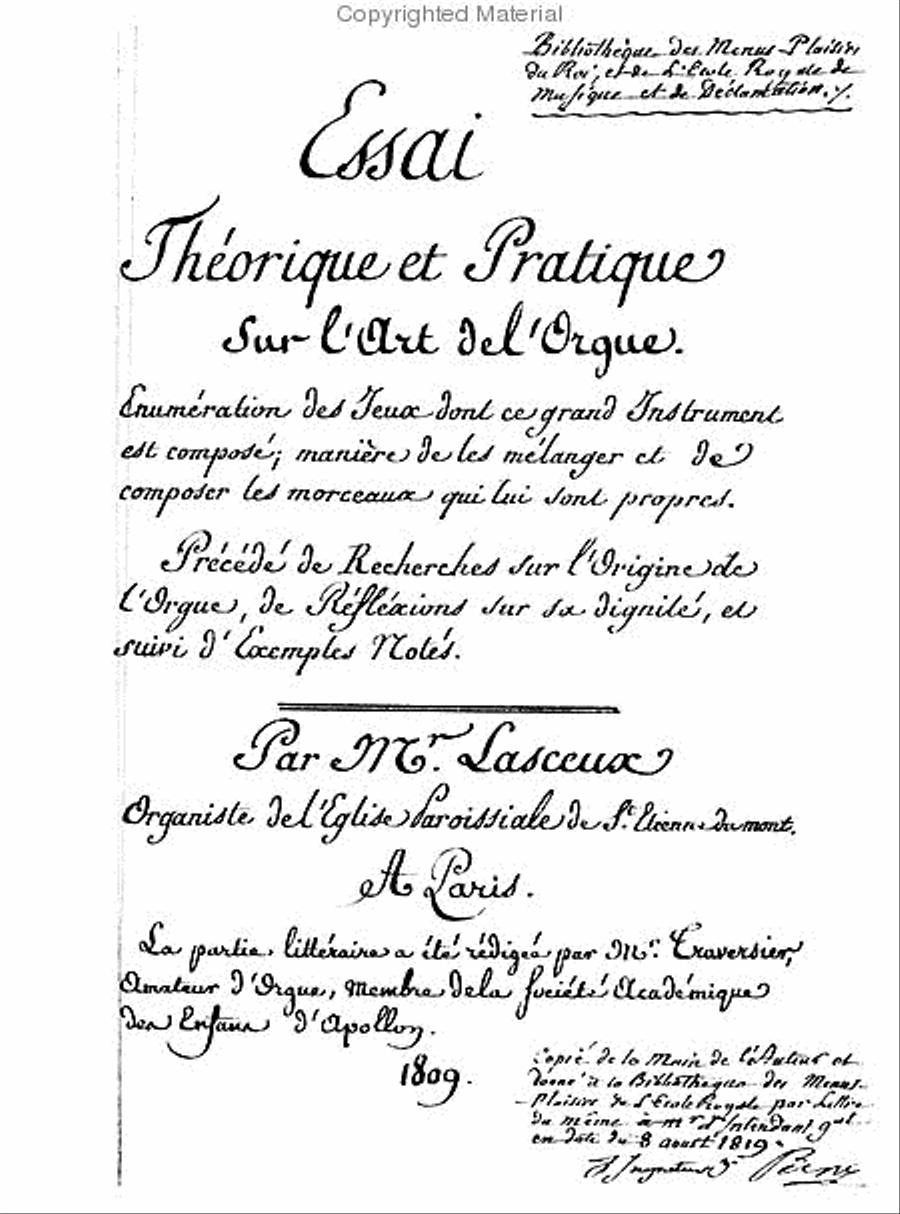 Copyrighted Material
Bibliothèque des Menus-Plaisirs
du Roi, et de L'Ecole Royale de
Musique et de Déclamation.
Essai
Théorique et Pratique
sur l'Art de l'Orgue.
Enumération des Jeux dont ce grand Instrument
est composé; manière de les mélanger et de
composer les morceaux qui lui sont propres.
Précédé de Recherches sur l'Origine de
l'Orgue, de Réfléxions sur sa dignité, et
suivi d'Exemples Notés.
Par Mr. Lasceux
Organiste de l'Eglise Paroissiale de St. Etienne du mont.
A Paris.
La partie littéraire a été rédigée par Mr. Traversier,
Amateur d'Orgue, Membre de la Société Académique
des Enfans d'Apollon.
1809.
Copié de la Main de l'Auteur et
donné à la Bibliothèque des Menus-
Plaisirs de l'Ecole Royale par Lettre
du même à mr. l'Intendant gal
en date du 8 aoust 1819.
Perne